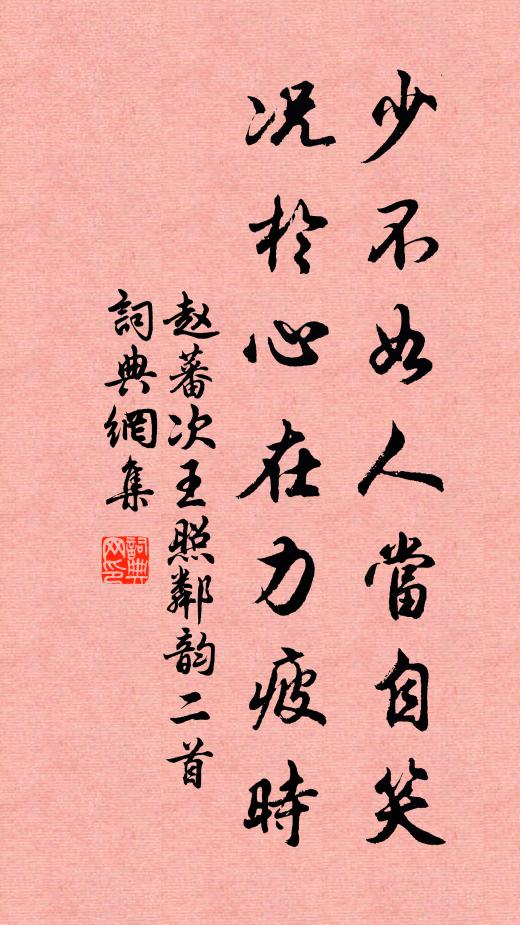 少不如人當自笑
况於心在力疲時
赵蕃次王照鄰韵二首
詞典網集
詞典網印